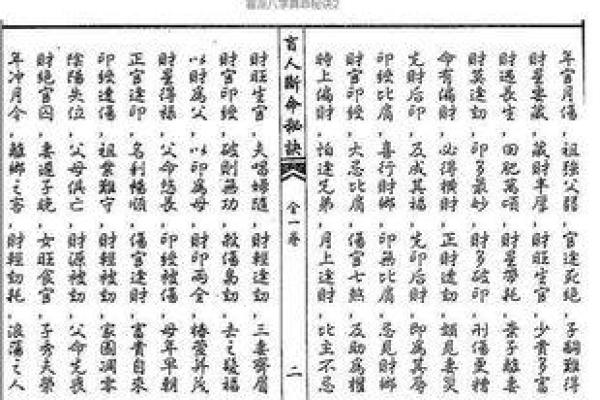 盲派八字算命秘诀2
年官月傷，祖強父弱，官逢死絕，子嗣難得
財星要藏，藏財半厚，財旺生官，少青多富
財遇長生，田肥萬頃，財星帶耗，棄子離妻
財莫逢劫，印多最妙，財多破印，刑傷更糟
命有偏財，必得橫財，正財逢劫，頭見妻災
先財后印，反成其福，先印后財，即為其辱
印綬比肩，喜行財鄉，印無比肩，忌見財鄉
財官印綬，大忌比肩，傷官七煞，反助為權
特上偏財，怕逢兄弟，月上逢財，比主不忌
盲人斷命秘訣 全一卷 二
財旺生官，夫唱婦隨，財輕逢劫，三妻齊眉
財官印綬，破則無功，救傷為劫，去之發福
以財為父，以印為母，財印兩全，椿萱并茂
財星得祿，父命悠長，印綬被傷，母年早朝
正官逢印，名利暢順，傷官逢財，富貴自來
印綬逢傷，祖業難守，財輕被劫，家園凋零
陰陽失位，父母俱亡，財源被劫，父命先喪
財絕官囚，妻遲子晚，女旺食官，子秀夫榮
年冲月令，離鄉之客，財輕劫耗，浪蕩之人